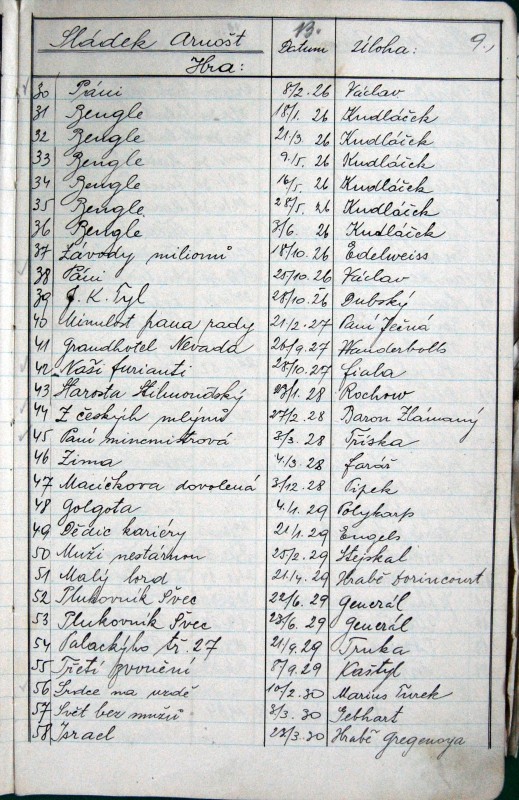 13.
Sládek Arnošt Datum Úloha: 9.,
Hra:
30 Páni 8/2. 26 Václav
31 Bengle 18/1. 26 Kudláček
32 Bengle 21/3. 26 Kudláček
33 Bengle 9./5. 26 Kudláček
34 Bengle 16/5. 26 Kudláček
35 Bengle 28/5. 26 Kudláček
36 Bengle 3/6. 26 Kudláček
37 Závody milionů 18/10. 26 Edelweiss
38 Páni 25/10. 26 Václav
39 J. K. Tyl 28/10. 26 Dubský
40 Minulost pana rady 21/2. 27 Paní Ječná
41 Grandhotel Nevada 26/9. 27 Wanderbolls
42 Naší furianti 28/10. 27 Fiala
43 Starosta Stilmondský 23/1. 28 Rochow
44 Z českých mlýnů 27/2. 28 Baron Zlámaný
45 Paní mincmistrová 3/3. 28 Tříska
46 Zima 4./3. 28 farář
47 Macíčkova dovolená 3/12. 28 Pipek
48 Golgota 4./1. 29 Polykarp
49 Dědic kariéry 21/1. 29 Engels
50 Muži nestárnou 25/2. 29 Stejskal
51 Malý lord 21/4. 29 Hrabě Dorincourt
52 Plukovník Švec 22/6. 29 Generál
53 Plukovník Švec 23/6. 29 Generál
54 Palackýho tř. 27 21/9. 29 Truka
55 Třetí zvonění 8/9. 29 Kaštyl
56 Srdce na uzdě 10/2. 30 Marius Turek
57 Svět bez mužů 3/3. 30 Gebhart
58 Israel 23/3. 30 Hrabě Gregenoya